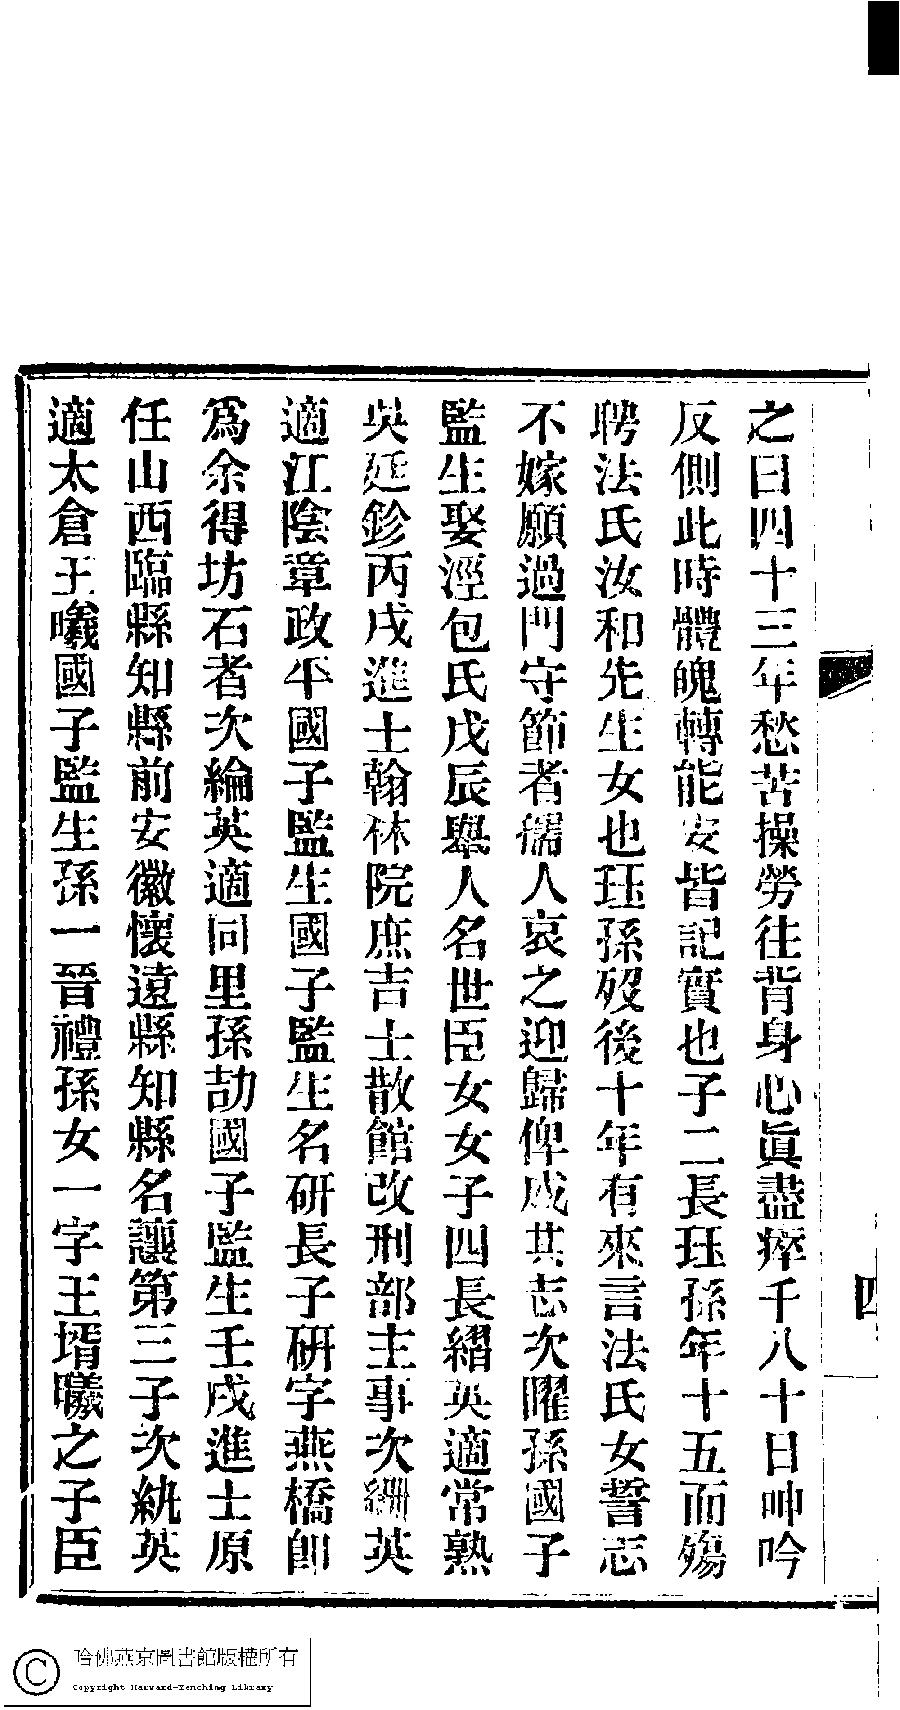 四
之曰四十三年愁苦操勞往背身心眞盡瘁千八十日呻吟
反側此時體魄轉能安皆記實也子二長珏孫年十五而殤
聘法氏汝和先生女也珏孫歿後十年有來言法氏女誓志
不嫁願過門守節者孺人哀之迎歸俾成其志次曜孫國子
監生娶涇包氏戊辰舉人名世臣女女子四長緗英適常熟
吳廷鉁丙戌進士翰林院庶吉士散館改刑部主事次𦈡英
適江陰章政平國子監生國子監生名硏長子硏字燕橋卽
爲余得坊石者次綸英適同里孫劼國子監生壬戌進士原
任山西臨縣知縣前安徽懷遠縣知縣名讓第三子次紈英
適太倉王曦國子監生孫一晉禮孫女一字王壻曦之子臣
哈佛燕京圖書館版權所有
Copyright Harvard-Yenching Library